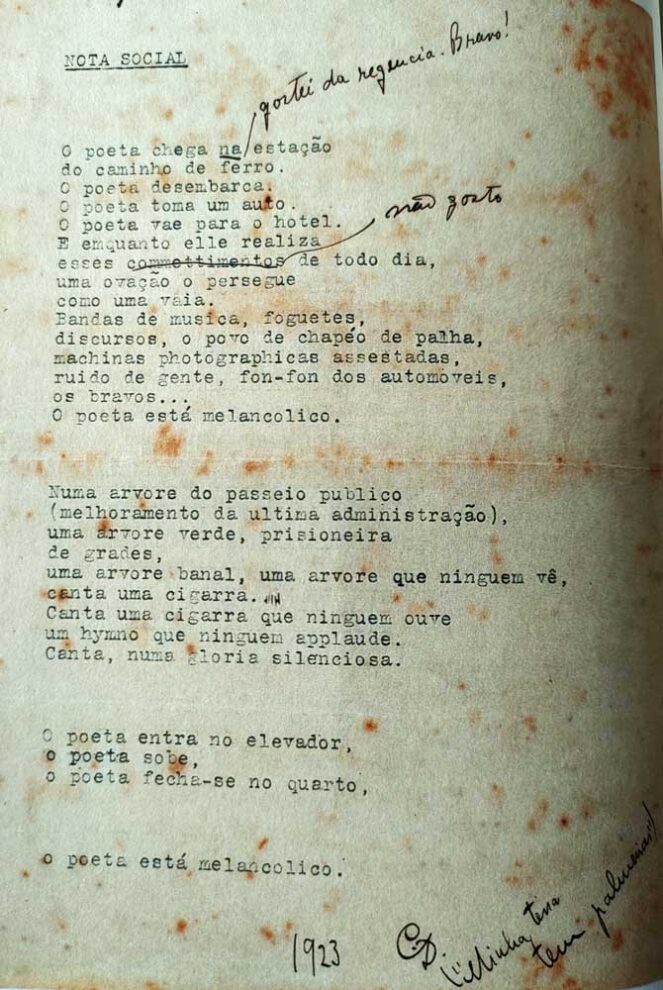 NOTA SOCIAL
gostei da regencia. Bravo!
O poeta chega na estação
do caminho de ferro.
O poeta desembarca.
O poeta toma um auto.
O poeta vae para o hotel.
não gosto
E emquanto elle realiza
esses commettimentos de todo dia,
uma ovação o persegue
como uma vaia.
Bandas de musica, foguetes,
discursos, o povo de chapéo de palha,
machinas photographicas assestadas,
ruido de gente, fon-fon dos automóveis,
os bravos...
O poeta está melancolico.
Numa arvore do passeio publico
(melhoramento da ultima administração),
uma árvore verde, prisioneira
de grades,
uma arvore banal, uma arvore que ninguem vê,
canta uma cigarra.
Canta uma cigarra que ninguem ouve
um hymno que ninguem applaude.
Canta, numa gloria silenciosa.
O poeta entra no elevador,
o poeta sobe,
o poeta fecha-se no quarto,
o poeta está melancolico.
1923
C.D.
("Minha terra
tem palmeiras")